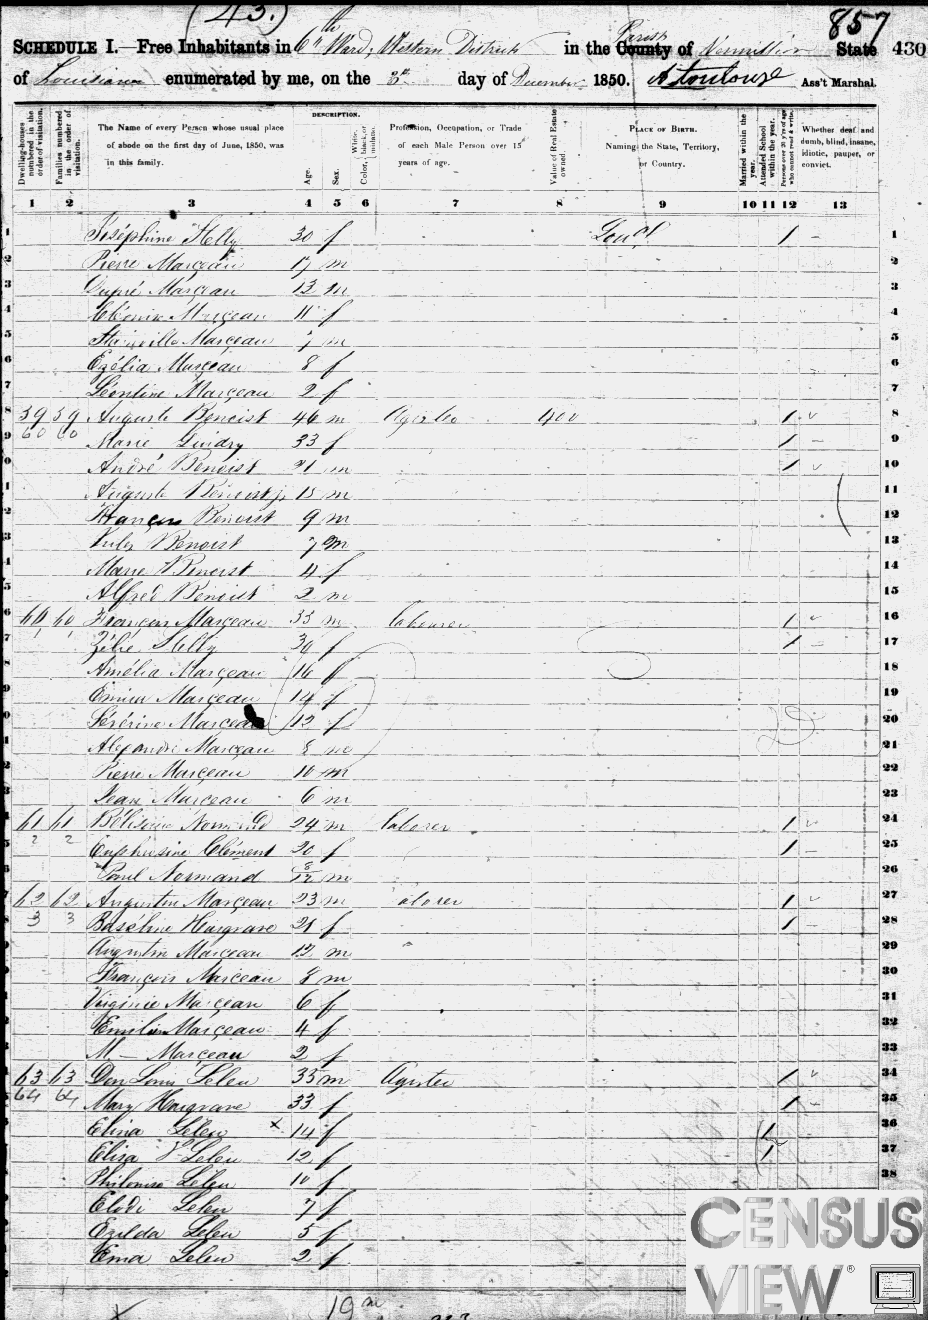 (43.)
857
SCHEDULE I.—Free Inhabitants in 6th Ward, Western District in the County Parish of Vermillion State 430
of Louisiana enumerated by me, on the 3d day of December 1850. A Toulouze Ass't Marshal.
Dwelling-houses numbered in the order of visitation.
Families numbered in the order of visitation.
The Name of every Person whose usual place of abode on the first day of June, 1850, was in this family.
DESCRIPTION.
Age.
Sex.
Color, White, black, or mulatto.
Profession, Occupation, or Trade of each Male Person over 15 years of age.
Value of Real Estate owned.
PLACE OF BIRTH. Naming the State, Territory, or Country.
Married within the year.
Attended School within the year.
Persons over 20 y'rs of age who cannot read & write.
Whether deaf and dumb, blind, insane, idiotic, pauper, or convict.
1 2 3 4 5 6 7 8 9 10 11 12 13
1 Joséphine Stelly 30 f 1 – 1
2 Pierre Marçeau 17 m 2
3 Dupré Marçeau 13 m 3
4 Marçeau 11 f 4
5 Marçeau 7 m 5
6 Ezélia Marçeau 8 f 6
7 Léontine Marçeau 2 f 7
8 59 59 Auguste Benoist 46 m 400 1 8
9 60 60 Marie Guidry 33 f 1 – 9
10 André Benoist 21 m 1 10
11 Auguste Benoist jr 15 m 11
12 François Benoist 9 m 12
13 Jules Benoist 7 m 13
14 Marie Benoist 4 f 14
15 Alfred Benoist 2 m 15
16 60 60 François Marçeau 33 m labourer 1 16
17 Zélie Stelly 30 f 1 – 17
18 Amélia Marçeau 16 f 18
19 Marçeau 14 f 19
20 Sévérine Marçeau 12 f 20
21 Alexandre Marceau 8 m 21
22 Pierre Marçeau 10 m 22
23 Jean Marceau 6 m 23
24 61 61 Bélisaire Normand 24 m laborer 1 24
25 2 2 Euphrosine Clément 20 f 1 – 25
26 Paul Normand 8/12 m 26
27 62 62 Augustin Marçeau 23 m laborer 1 27
28 3 3 Baséline Hargrave 21 f 1 – 28
29 Augustin Marceau 12 m 29
30 François Marceau 8 m 30
31 Virginie Marçeau 6 f 31
32 Marçeau 4 f 32
33 M— Marçeau 2 f 33
34 63 63 Don Louis Leleu 35 m 1 34
35 64 64 Mary Hargrave 33 f 1 – 35
36 Elina Leleu x 14 f 1 36
37 Elisa V Leleu 12 f 1 37
38 Philomise Leleu 10 f 38
Elodi Leleu 7 f
Ezilda Leleu 5 f
Ema Leleu 2 f
CENSUS VIEW ®